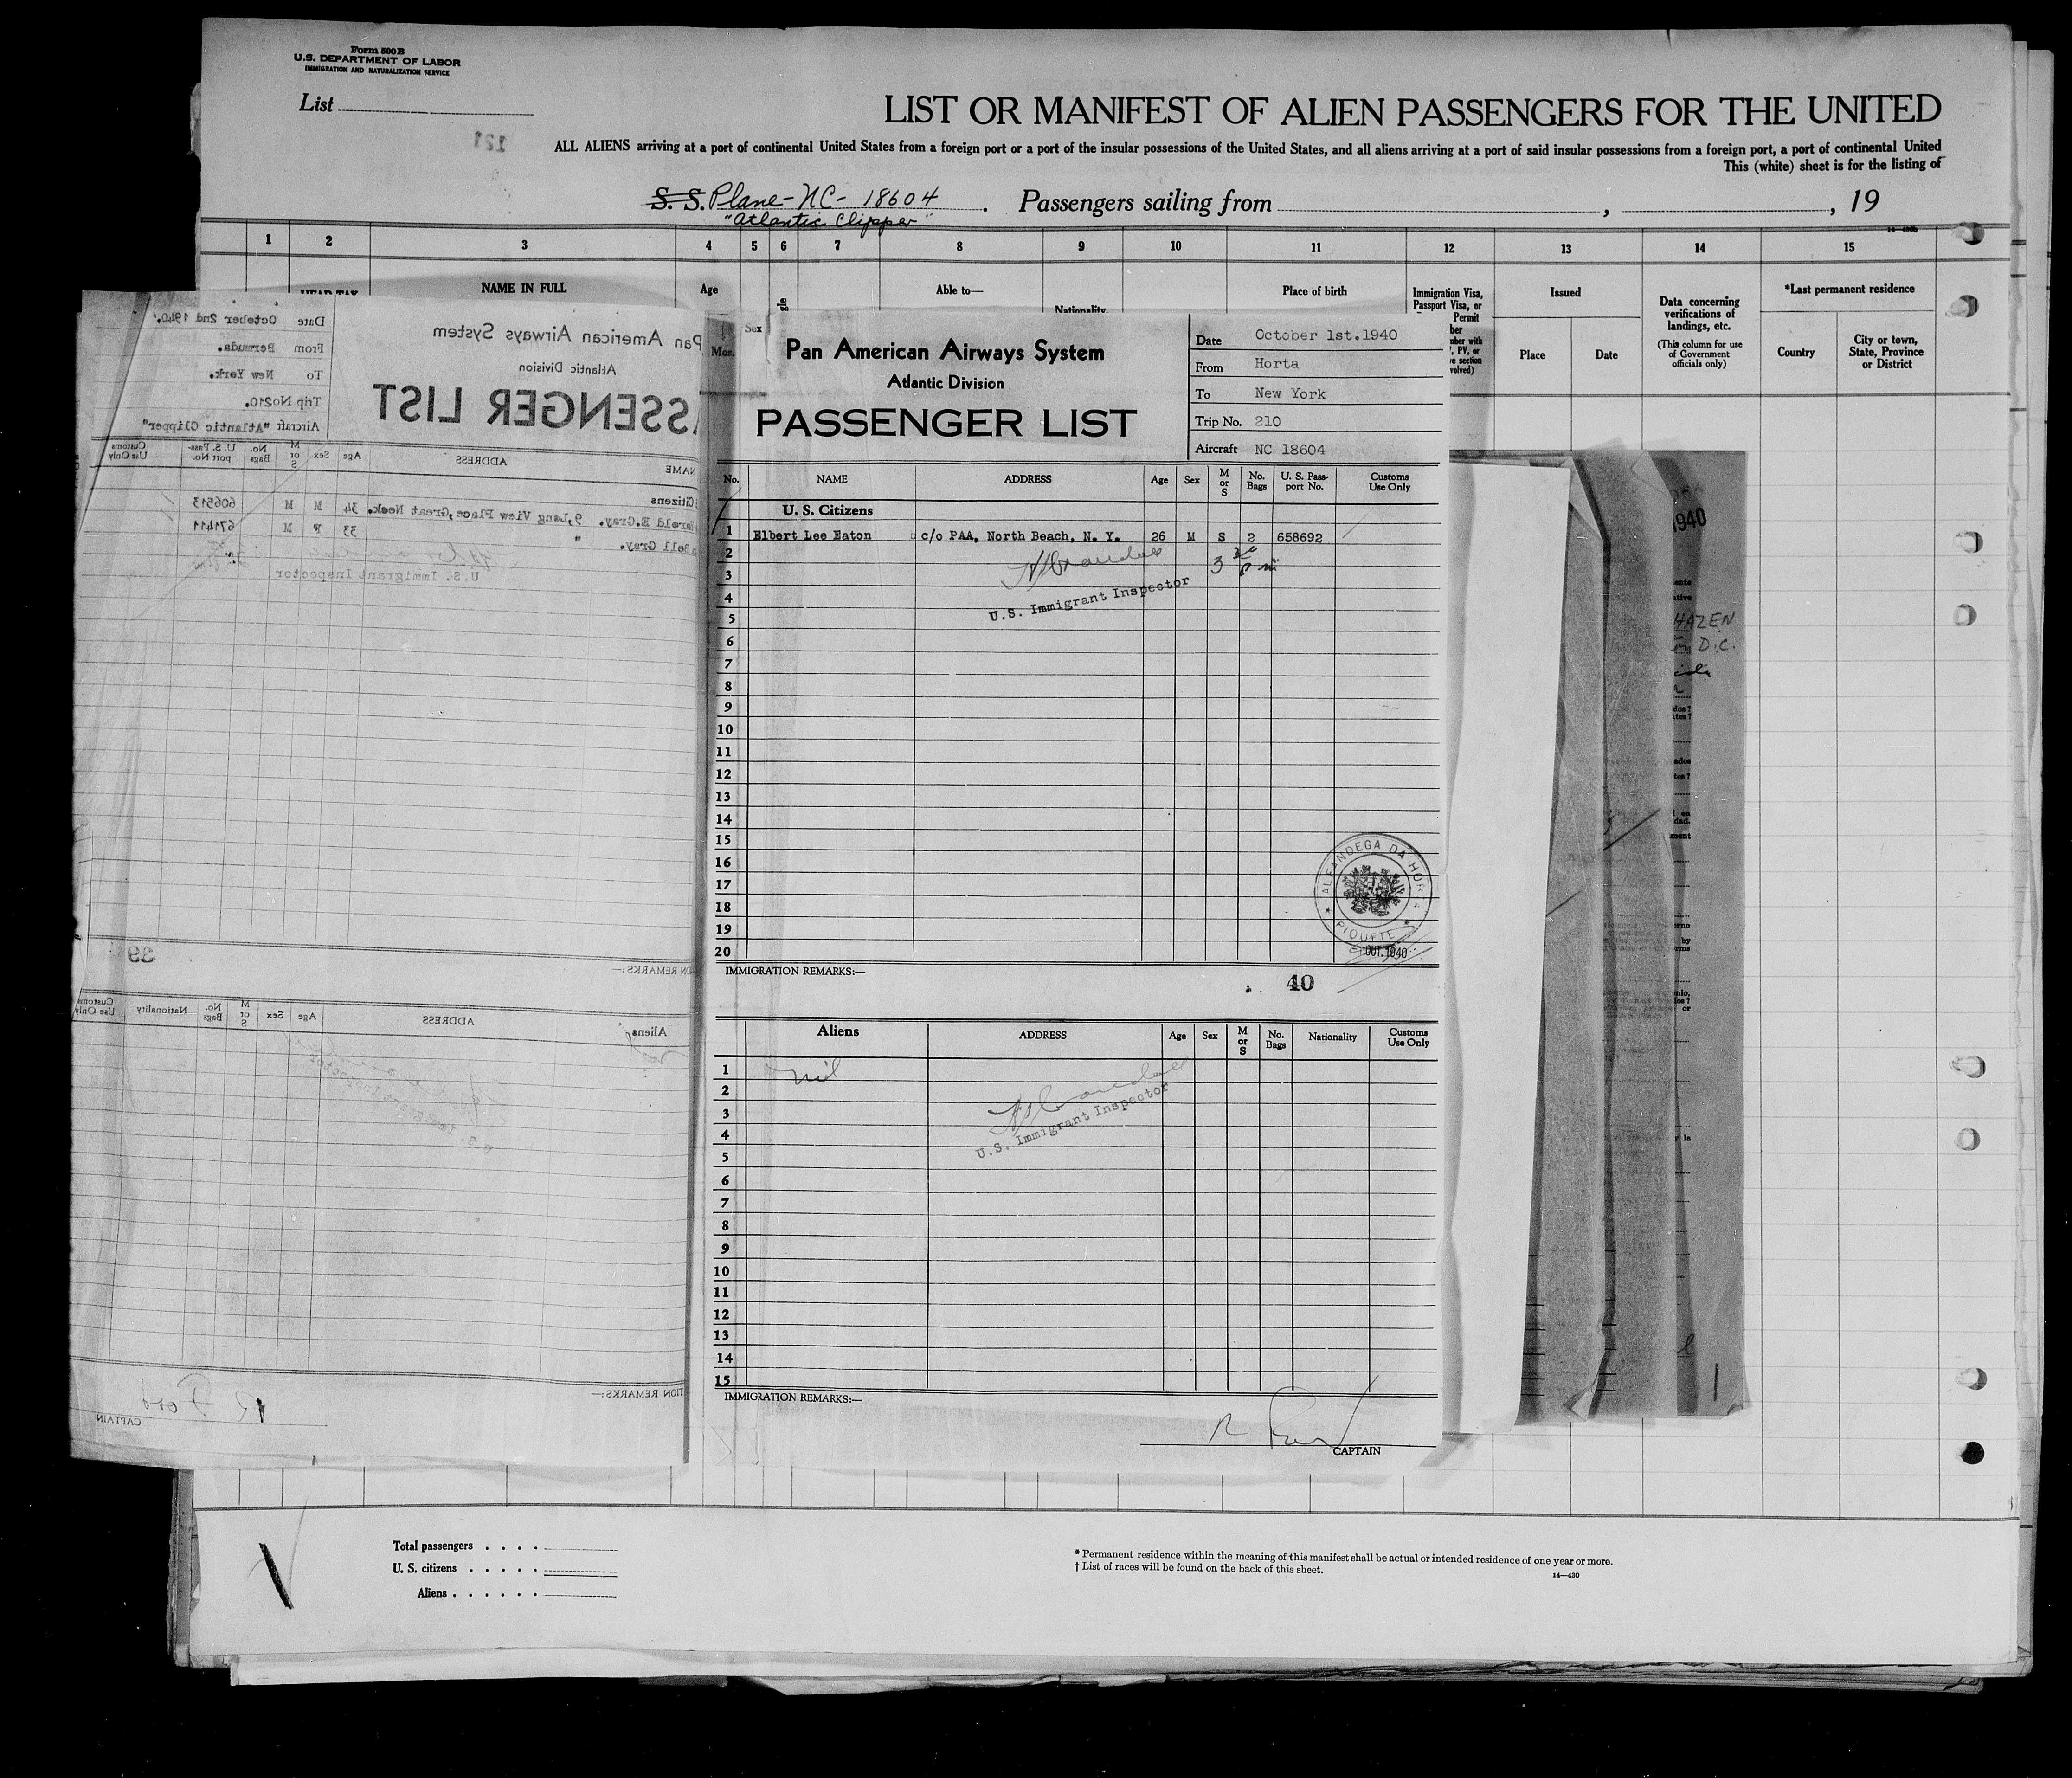 Form 500B
U.S. DEPARTMENT OF LABOR
IMMIGRATION AND NATURALIZATION SERVICE
List
121
LIST OR MANIFEST OF ALIEN PASSENGERS FOR THE UNITED
ALL ALIENS arriving at a port of continental United States from a foreign port or a port of the insular possessions of the United States, and all aliens arriving at a port of said insular possessions from a foreign port, a port of continental United
This (white) sheet is for the listing of
S. S. Plane-NC-18604 . Passengers sailing from , , 19
"Atlantic Clipper"
1 2 3 4 5 6 7 8 9 10 11 12 13 14 15
HEAD TAX
NAME IN FULL
Age
Mos.
Sex
Able to—
Nationality.
Place of birth
Immigration Visa,
Passport Visa, or
Permit
Issued
Place
Date
Data concerning
verifications of
landings, etc.
(This column for use
of Government
officials only)
*Last permanent residence
Country
City or town,
State, Province
or District
Pan American Airways System
Atlantic Division
SSENGER LIST
Date October 2nd 1940.
From Bermuda.
To New York.
Trip No 210.
Aircraft "Atlantic Clipper"
NAME ADDRESS Age Sex M or S No. Bags U. S. Pass- port No. Customs Use Only
Citizens
Harold E.Gray. 9,Long View Place,Great Neck. 34 M M 606513
Bell Gray. " 33 F M 674411
U.S. Immigrant Inspector
39
ION REMARKS:—
Aliens ADDRESS Age Sex M or S No. Bags Nationality Customs Use Only
U.S. Immigrant Inspector
TION REMARKS:—
CAPTAIN
Pan American Airways System
Atlantic Division
PASSENGER LIST
Date October 1st.1940
From Horta
To New York
Trip No. 210
Aircraft NC 18604
No. NAME ADDRESS Age Sex M or S No. Bags U. S. Pass- port No. Customs Use Only
U. S. Citizens
1 Elbert Lee Eaton c/o PAA, North Beach, N. Y. 26 M S 2 658692
2
3
4
U.S. Immigrant Inspector
5
6
7
8
9
10
11
12
13
14
15
16
17
18
19
20
ALFANDEGA DA HOR
PIQUETE
OUT. 1940
IMMIGRATION REMARKS:—
40
Aliens ADDRESS Age Sex M or S No. Bags Nationality Customs Use Only
1 nil
2
3
4
U.S. Immigrant Inspector
5
6
7
8
9
10
11
12
13
14
15
IMMIGRATION REMARKS:—
CAPTAIN
1940
HAZEN
D.C.
Total passengers
U. S. citizens
Aliens
* Permanent residence within the meaning of this manifest shall be actual or intended residence of one year or more.
† List of races will be found on the back of this sheet.
14—430